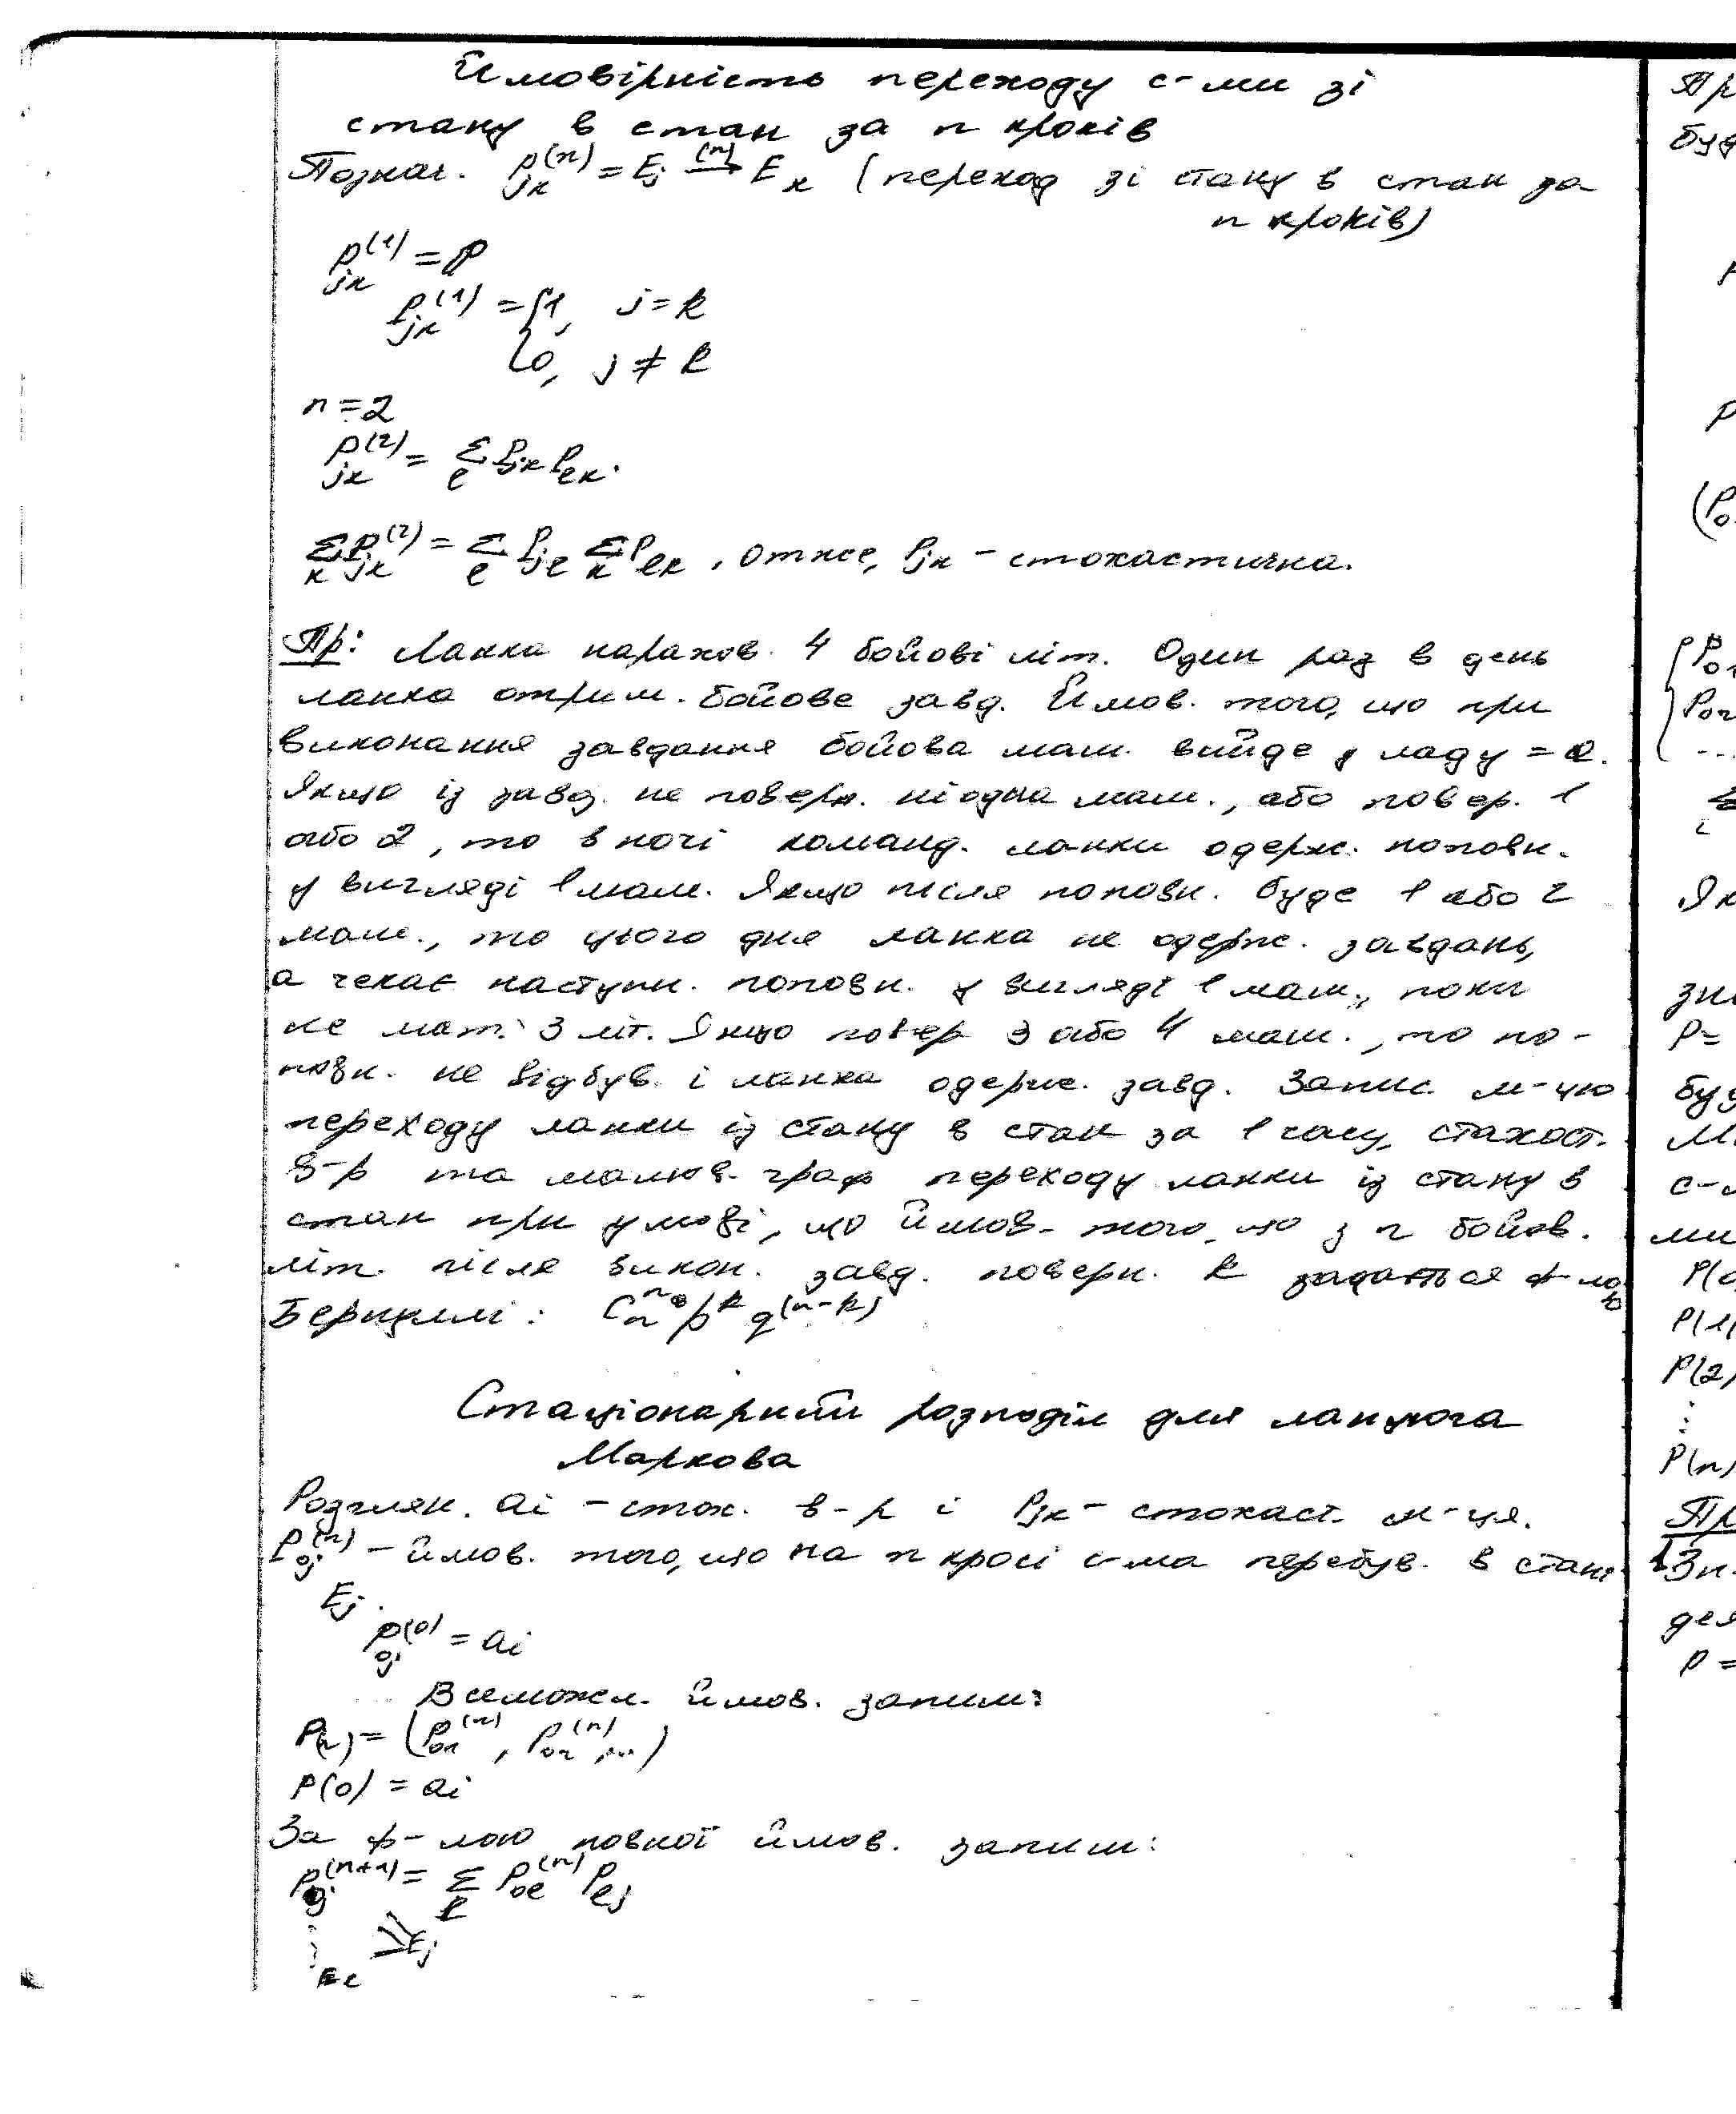 Ймовірність переходу с-ми зі
стану в стан за n кроків
Познач. P_jk^(n) = E_j →^(n) E_k (переход зі стану в стан за
n кроків)
P_jk^(1) = P
P_jk^(1) = {1, j = k
{0, j ≠ k
n = 2
P_jk^(2) = Σ_e P_jk P_ek.
Σ_k P_jk^(2) = Σ_e P_je Σ_k P_ek, отже, P_jk – стохастична.
Пр: Ланка нарахов. 4 бойові літ. Один раз в день
ланка отрим. бойове завд. Ймов. того, що при
виконання завдання бойова маш. вийде з ладу =
Якщо із завд. не поверн. ні одна маш., або повер. 1
або 2, то в ночі команд. ланки одерж. поповн.
у вигляді 1 маш. Якщо після поповн. буде 1 або 2
маш., то цього дня ланка не одерж. завдань,
а чекає наступн. поповн. у вигляді 1 маш., поки
не мат. 3 літ. Якщо повер 3 або 4 маш., то по-
повн. не відбув. і ланка одерж. завд. Запис. м-цю
переходу ланки із стану в стан за 1 часу, стахост.
в-р та малюв. граф переходу ланки із стану в
стан при умові, що ймов. того, що з n бойов.
літ. після викон. завд. поверн. k задається ф-лою
Бернуллі: C_n^n p^k q^(n-k)
Стаціонарний розподіл для ланцюга
Маркова
Розглян. ai – стох. в-р і P_jk – стохаст. м-ця.
P_oj^(n) – ймов. того, що на n кроці с-ма перебув. в стані
E_j.
P_oj^(0) = ai
Всеможл. ймов. запиш:
P(n) = (P_o1^(n), P_o2^(n), ...)
P(0) = ai
За ф-лою повної ймов. запиш:
P_oj^(n+1) = Σ_e P_oe^(n) P_ej
E_j
E_e
Пр
буд
P
P
(P_o
{P_o
P_o2
...
Як
P=
буд
с-м
ми
P(0
P(1
P(2)
⋮
P(n)
Пр
1 Зн.
дея
P =